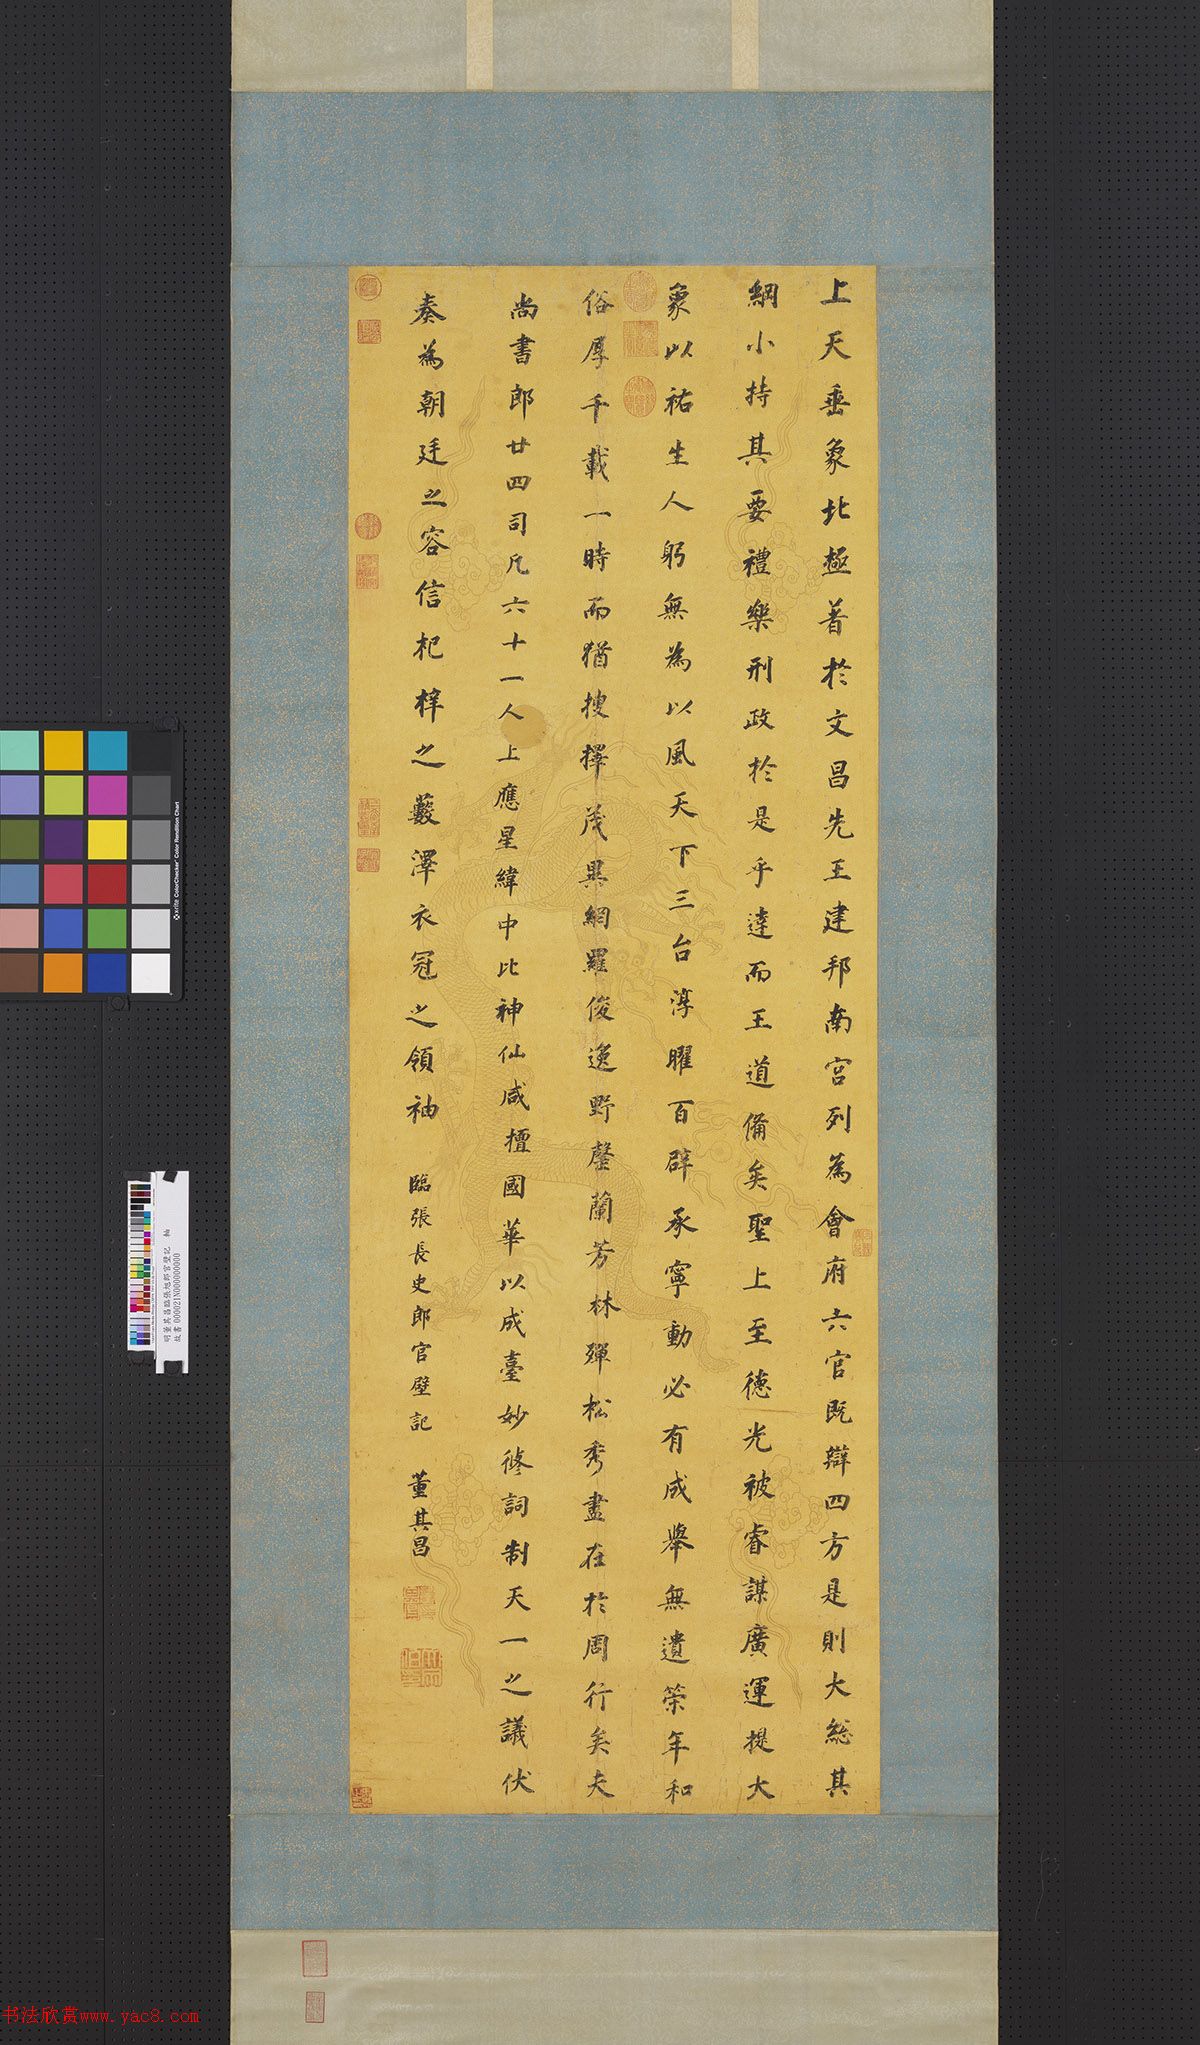 上天垂象北極著於文昌先王建邦南宮列為會府六官既辯四方是則大總其
綱小持其要禮樂刑政於是乎達而王道備矣聖上至德光被睿謀廣運提大
象以祐生人躬無為以風天下三台淳曜百辟承寧動必有成舉無遺策年和
俗厚千載一時而猶搜擇茂異網羅俊逸野罄蘭芳林殫松秀盡在於周行矣夫
尚書郎廿四司凡六十一人上應星緯中比神仙咸擅國華以成臺妙修詞制天一之議伏
奏為朝廷之容信杞梓之藪澤衣冠之領袖
臨張長史郎官壁記
董其昌
明董其昌臨張旭郎官壁記 軸
故書000021N000000000
x-rite ColorChecker Color Rendition Chart
书法欣赏www.yac8.com